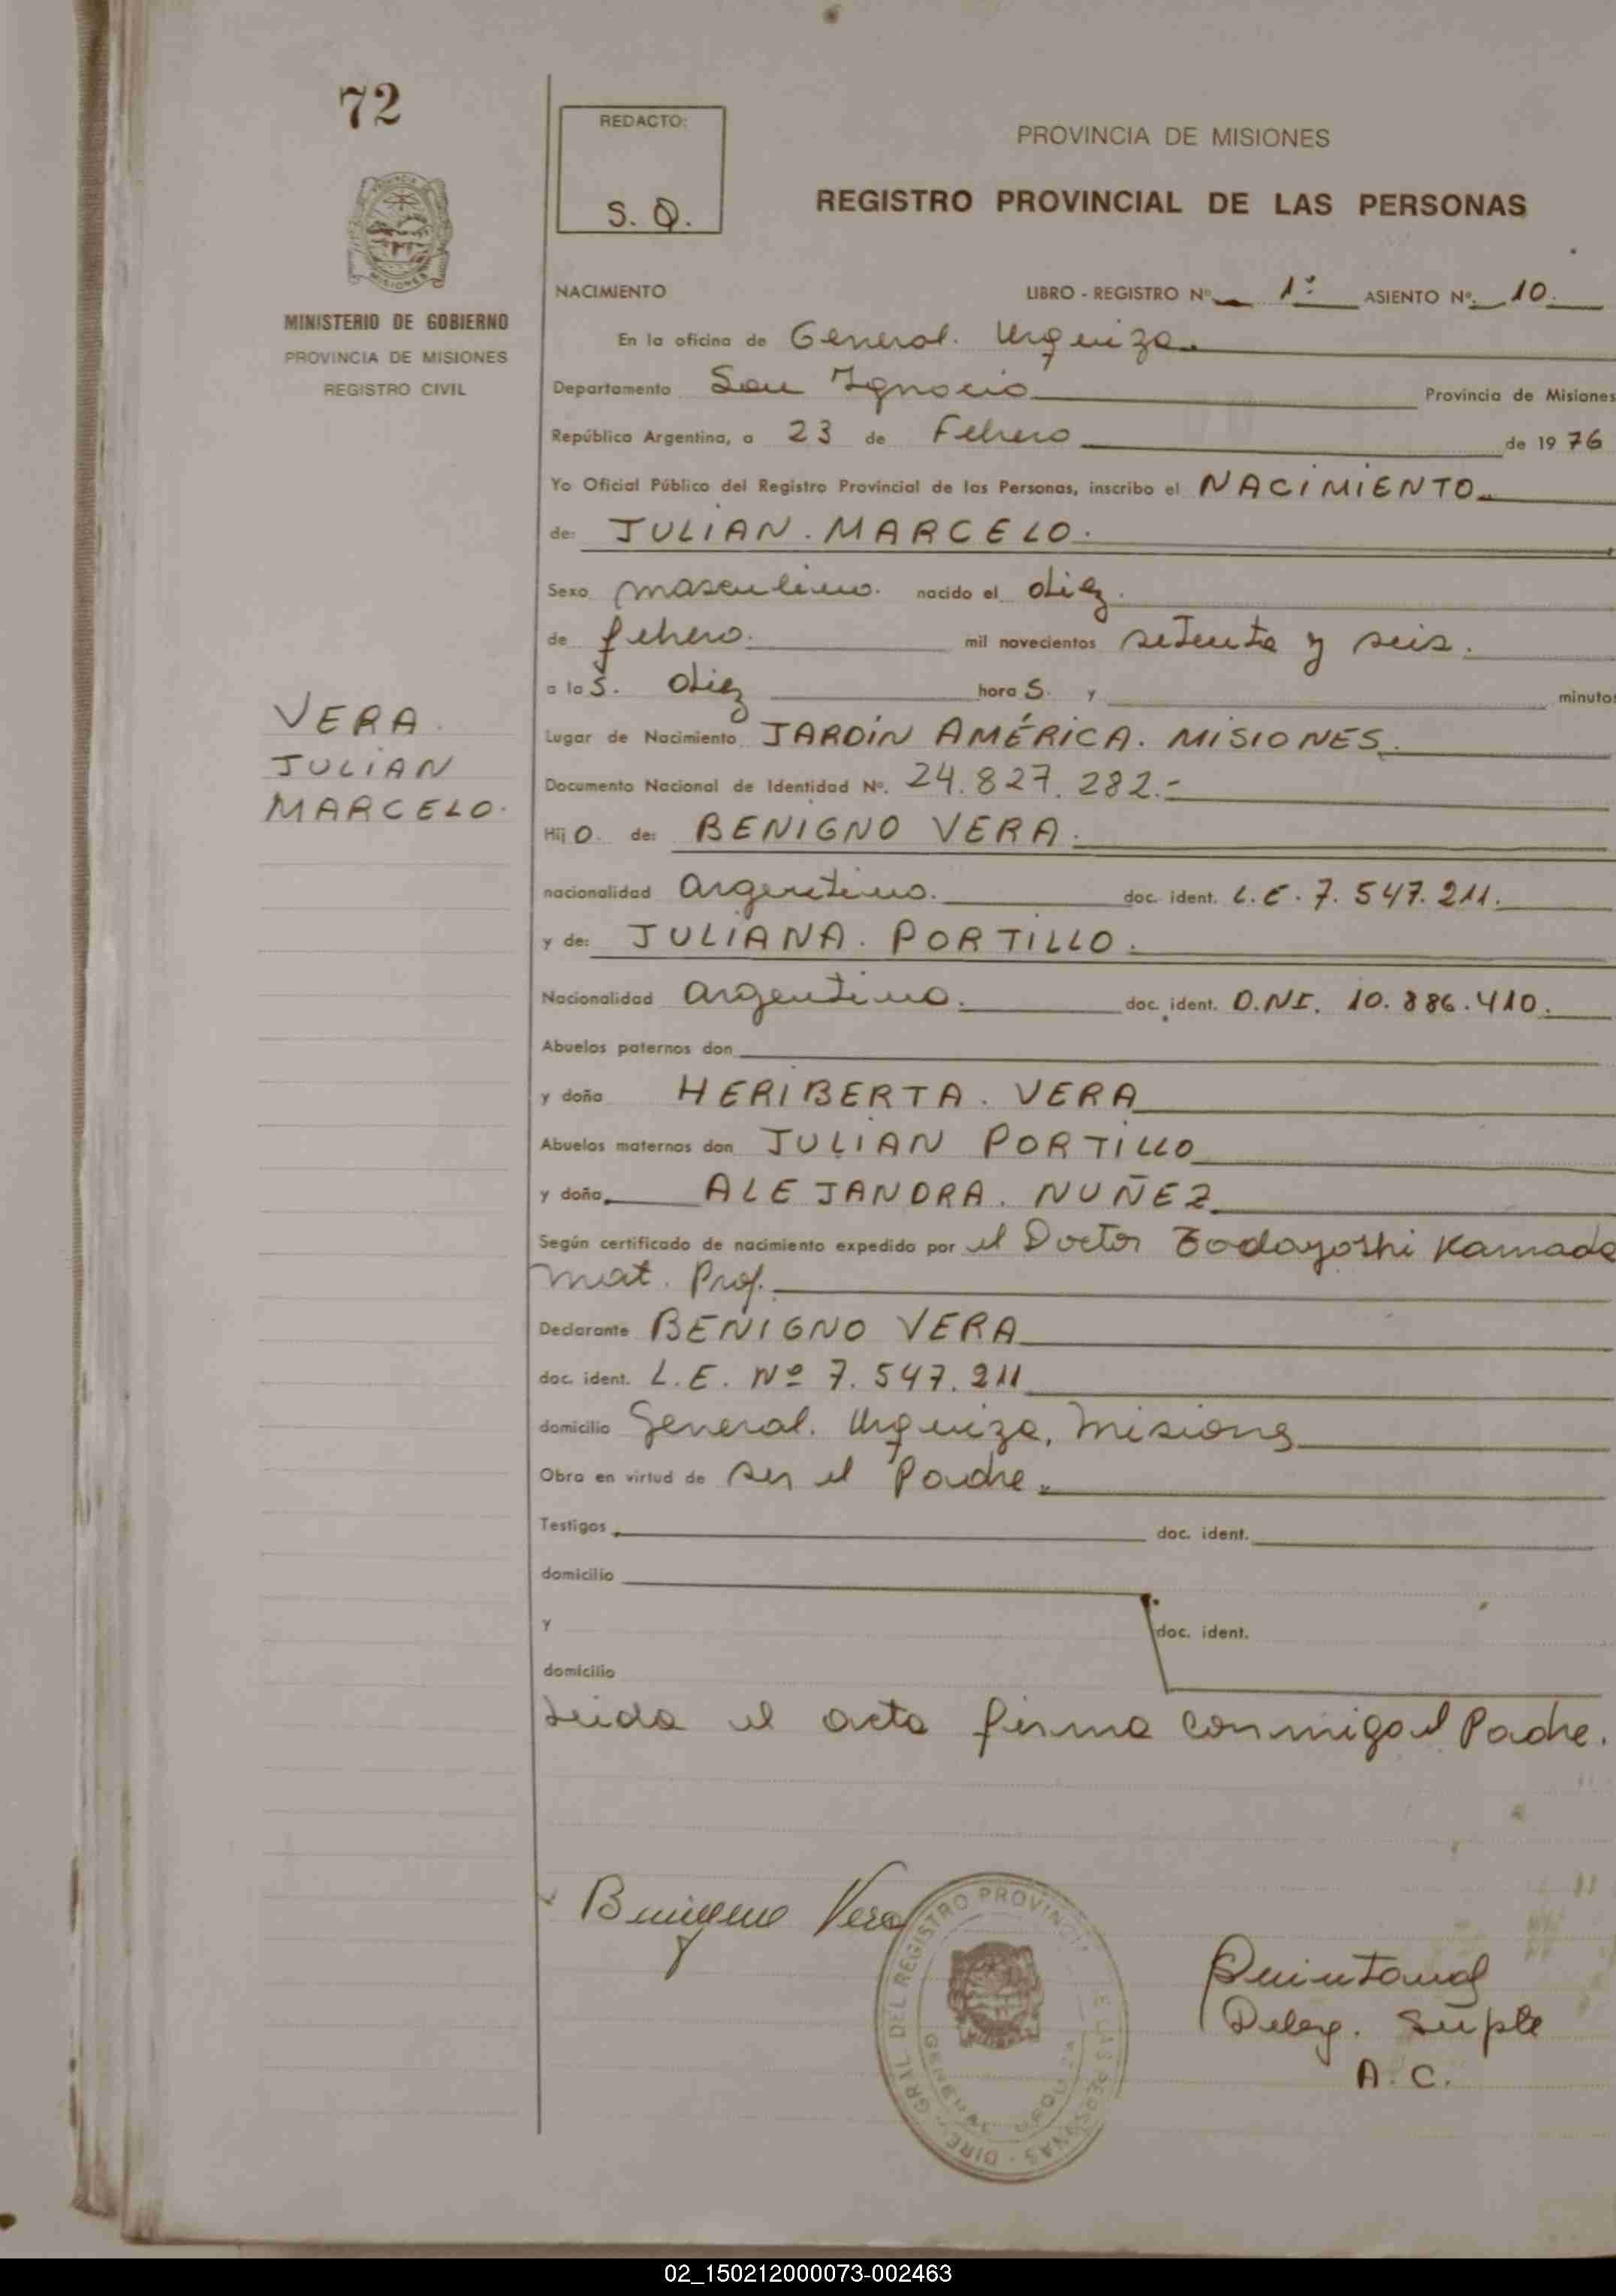 72
REDACTO:
S. Q.
PROVINCIA DE MISIONES
REGISTRO PROVINCIAL DE LAS PERSONAS
MINISTERIO DE GOBIERNO
PROVINCIA DE MISIONES
REGISTRO CIVIL
NACIMIENTO LIBRO - REGISTRO Nº 1º ASIENTO Nº. 10.
En la oficina de General. Urquiza.
Departamento San Ignacio Provincia de Misiones
República Argentina, a 23 de Febrero de 1976
Yo Oficial Público del Registro Provincial de las Personas, inscribo el NACIMIENTO
de: JULIAN. MARCELO.
Sexo masculino. nacido el diez.
de febrero. mil novecientos setenta y seis.
a las. diez horas. y minutos
VERA.
JULIAN
MARCELO.
Lugar de Nacimiento JARDÍN AMÉRICA. MISIONES.
Documento Nacional de Identidad Nº. 24.827.282.-
Hijo. de: BENIGNO VERA.
nacionalidad argentino. doc. ident. L.E. 7.547.211.
y de: JULIANA. PORTILLO.
Nacionalidad argentina. doc. ident. D.NI. 10.886.410.
Abuelos paternos don
y doña HERIBERTA. VERA
Abuelos maternos don JULIAN PORTILLO
y doña ALEJANDRA. NUÑEZ
Según certificado de nacimiento expedido por el Doctor Kamada
mat. Prof.
Declarante BENIGNO VERA
doc. ident. L.E. Nº 7.547.211
domicilio General. Urquiza, Misiones
Obra en virtud de ser el Padre.
Testigos doc. ident.
domicilio
y doc. ident.
domicilio
Leida el acta firma conmigo el Padre.
Benigno Vera
DIRE. GRAL. DEL REGISTRO PROVINCIAL DE LAS PERSONAS
GENERAL URQUIZA
Quintana
Deleg. Suple
A. C.
02_150212000073-002463